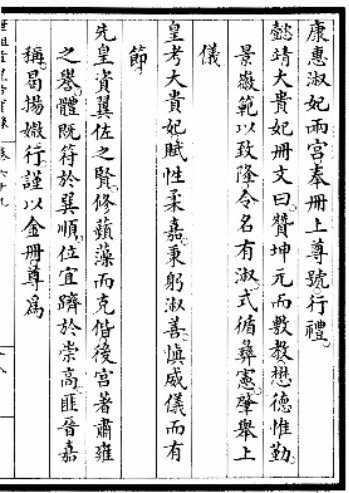 康惠淑妃兩宮奉冊上尊號行禮
懿靖大貴妃冊文曰贊坤元而敷教懋德惟勤
景徽範以致隆令名有淑式循彝憲肇舉上
儀
皇考大貴妃賦性柔嘉秉躬淑善慎威儀而有
節
先皇資翼佐之賢修蘋藻而克偕後宮著肅雍
之譽體既符於巽順位宜躋於崇高匪晉嘉
稱曷揚媺行謹以金冊尊為